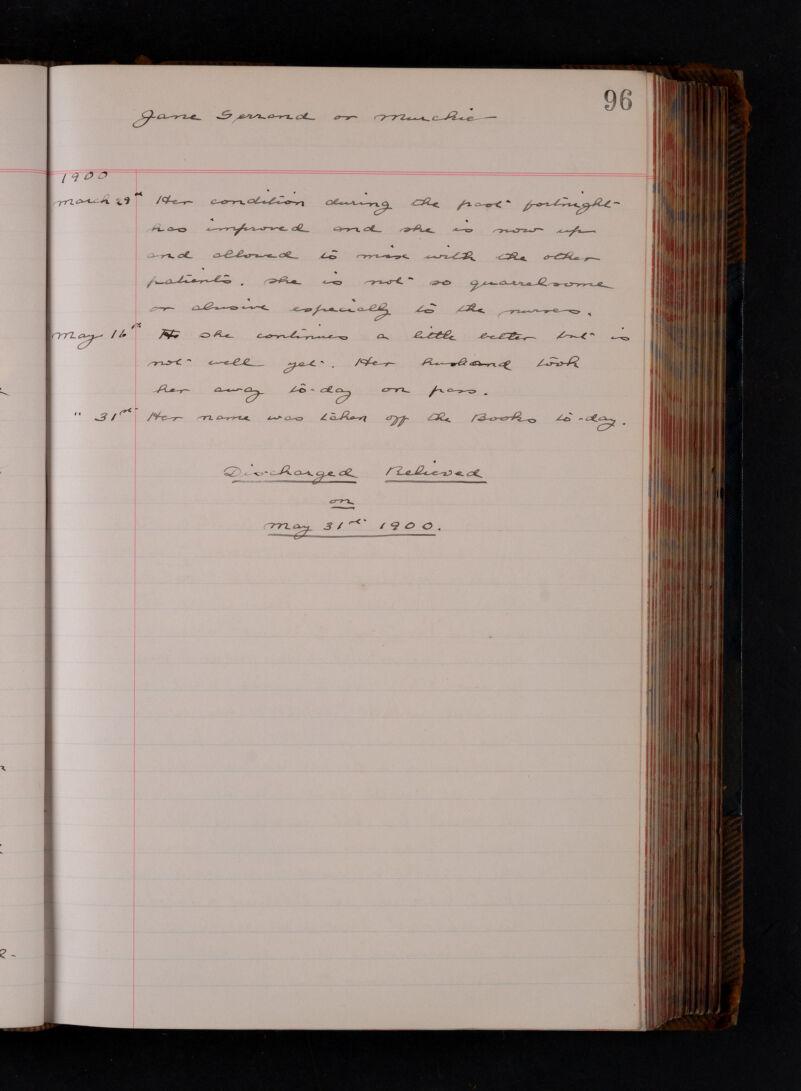 96
Jane Gerrand or Murchie
1900
March 29th Her condition during the past fortnight
has improved and she is now up
and allowed to mix with the other
patients. She is not so quarrelsome
or abusive especially to the nurses.
May 16th She continues a little better but is
not well yet. Her husband took
her away to-day on pass.
" 31st Her name was taken off the Books to-day.
Discharged Relieved
on
May 31st 1900.